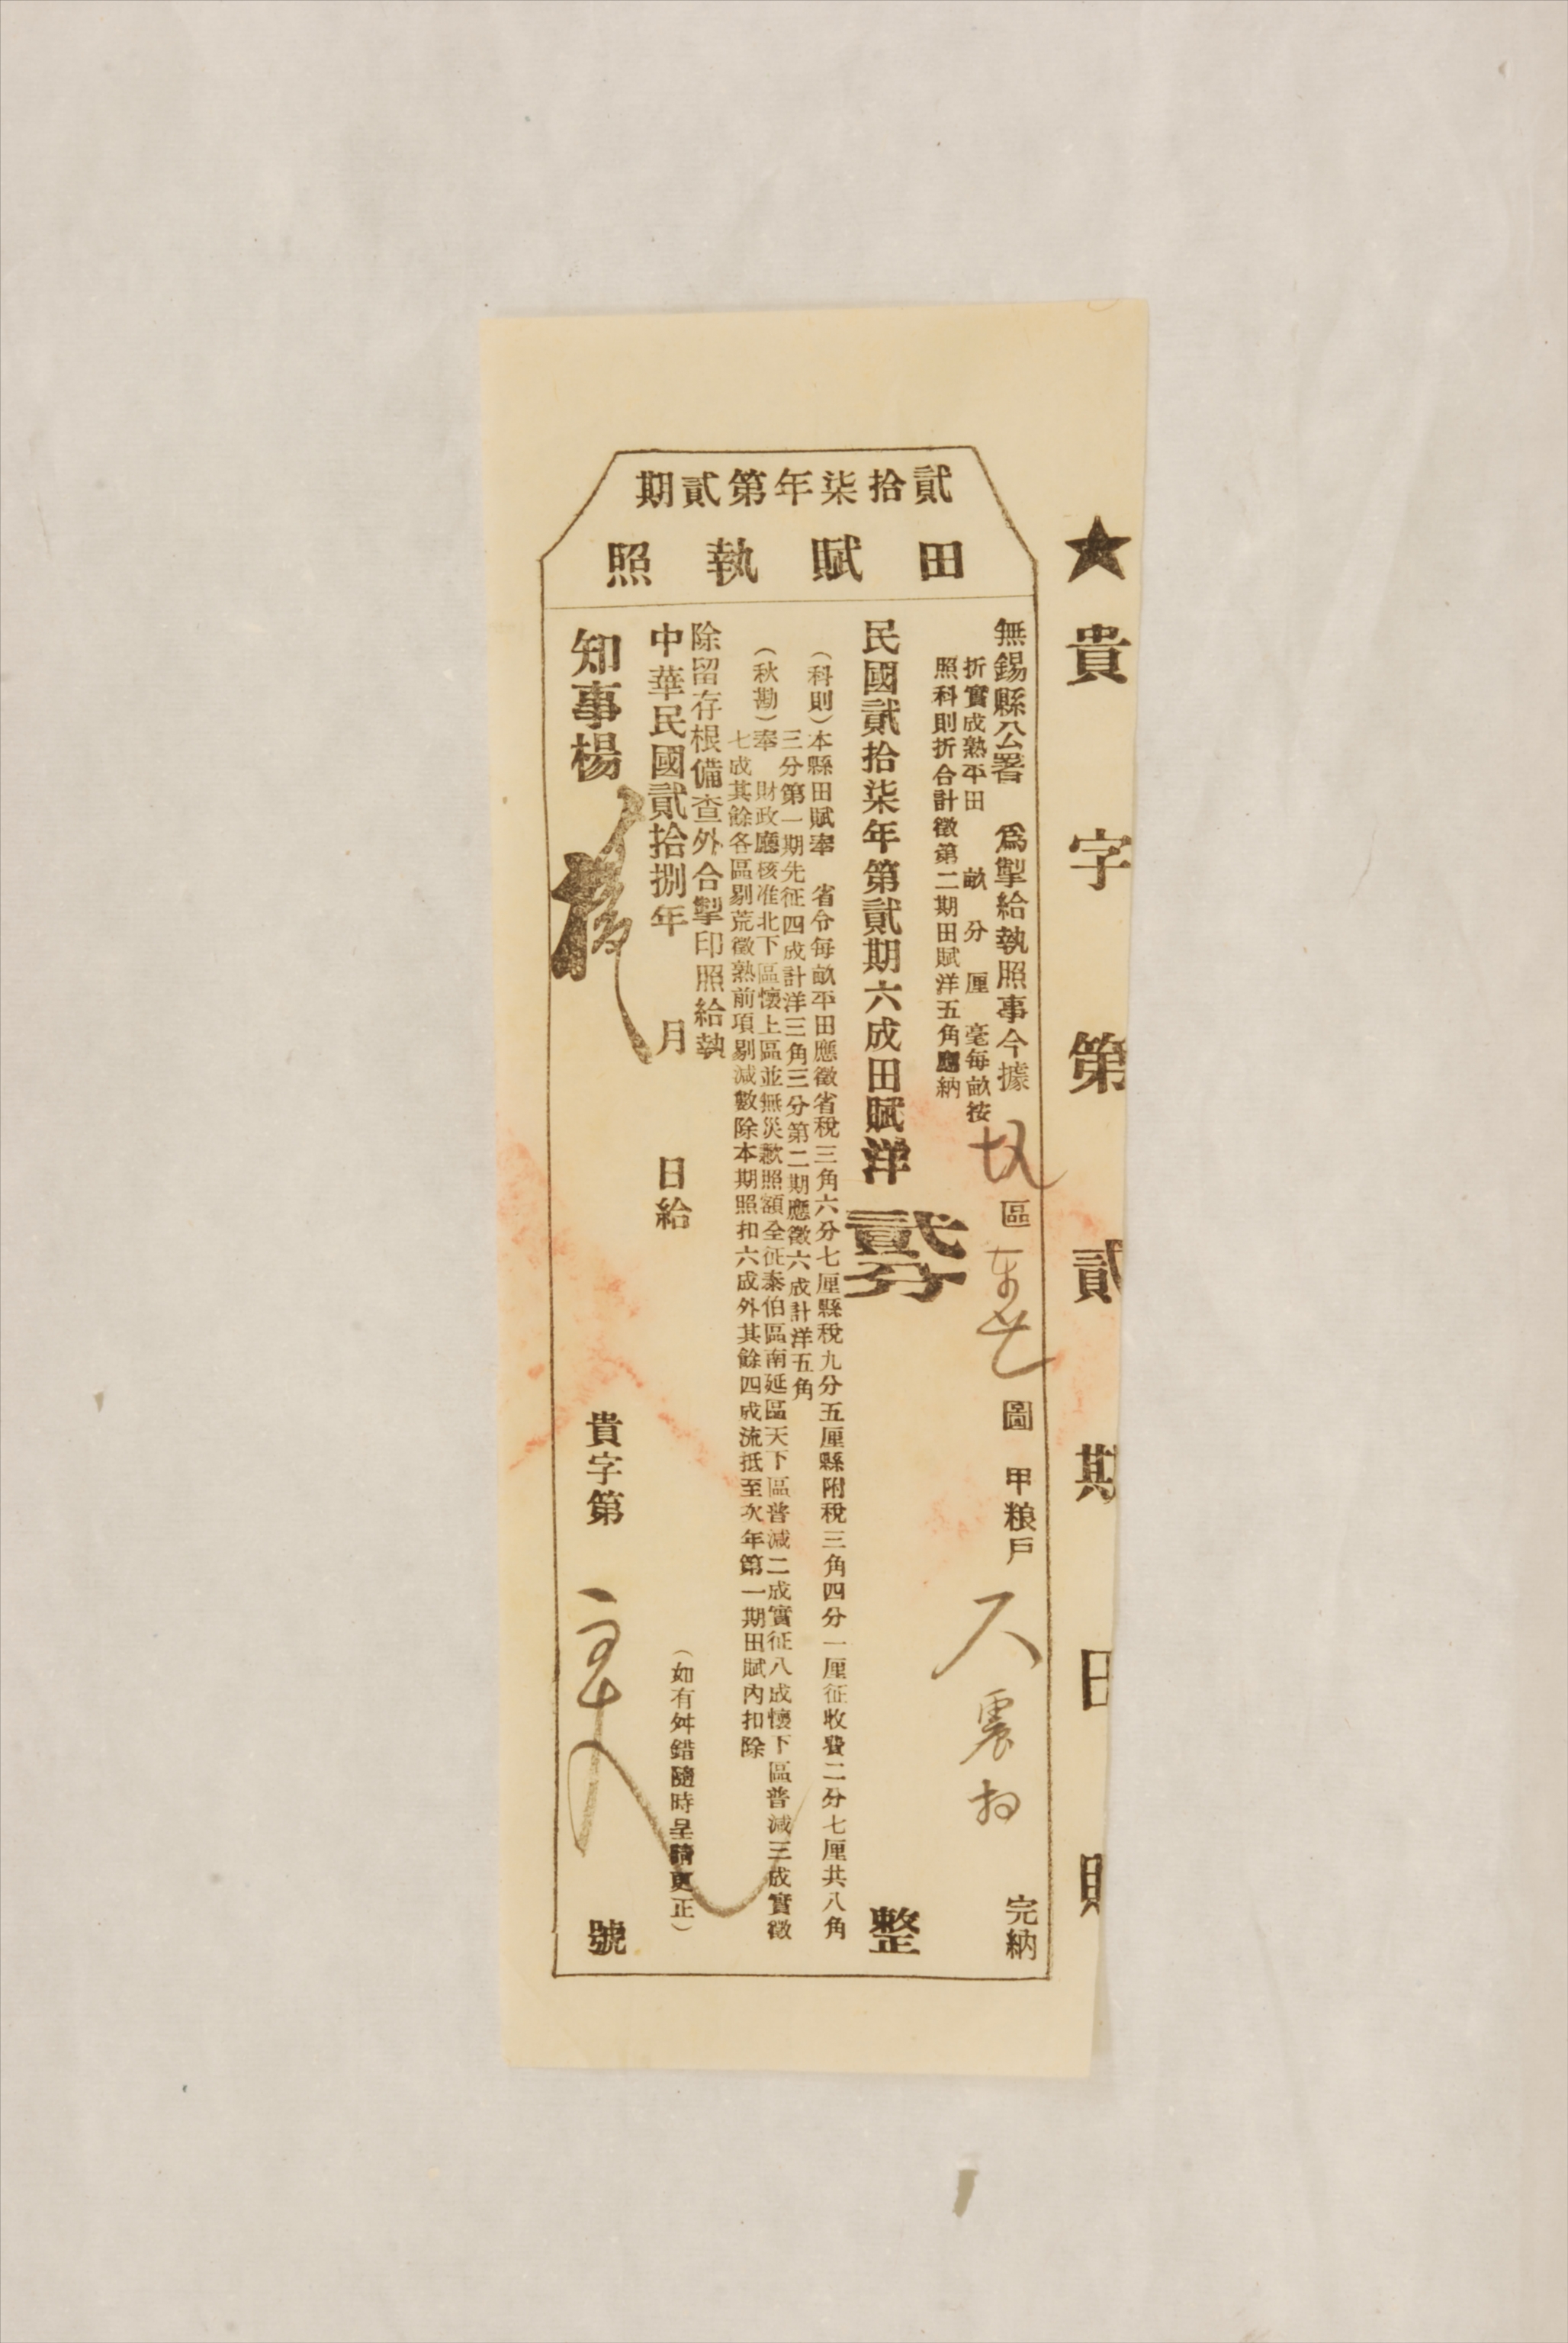 ★貴字第貳期田賦
貳拾柒年第貳期
田賦執照
無錫縣公署　爲掣給執照事今據　區　圖　甲粮戶　完納
折實成熟平田　畝　分　厘　毫每畝按
照科則折合計徵第二期田賦洋五角應納
民國貳拾柒年第貳期六成田賦洋貳分整
（科則）本縣田賦奉　省令每畝平田應徵省稅三角六分七厘縣稅九分五厘縣附稅三角四分一厘征收費二分七厘共八角
三分第一期先征四成計洋三角三分第二期應徵六成計洋五角
（秋勘）奉　財政廳核准北下區懷上區並無災歉照額全征泰伯區南延區天下區普減二成實征八成懷下區普減三成實徵
七成其餘各區剔荒徵熟前項剔減數除本期照扣六成外其餘四成流抵至次年第一期田賦內扣除
除留存根備查外合掣印照給執
中華民國貳拾捌年　月　日給
（如有舛錯隨時呈請更正）
知事楊
貴字第　號